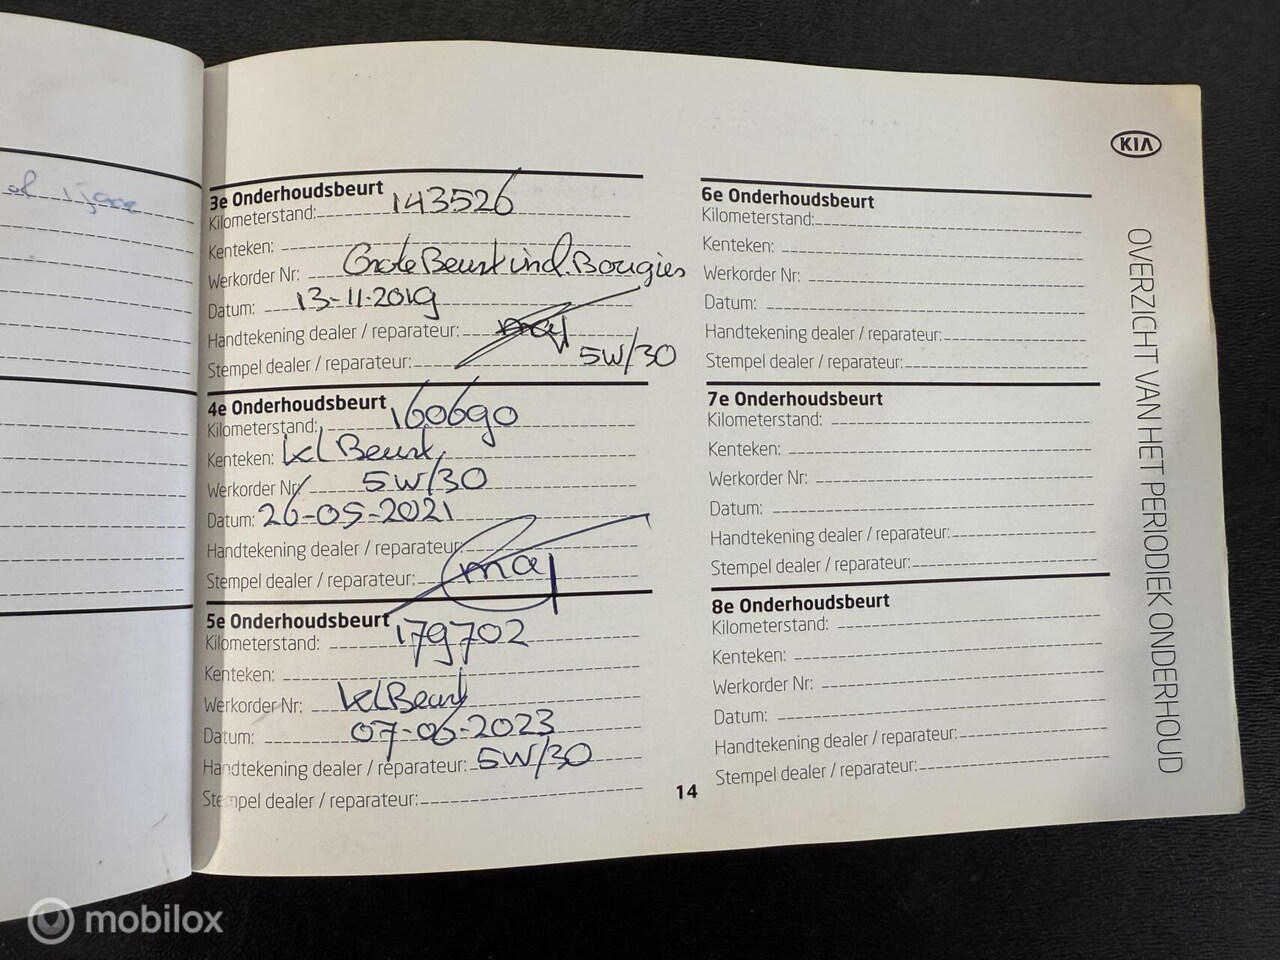 KIA
OVERZICHT VAN HET PERIODIEK ONDERHOUD
3e Onderhoudsbeurt
Kilometerstand: 143526
Kenteken:
Werkorder Nr: Grote Beurt incl. Bougies
Datum: 13-11-2019
Handtekening dealer / reparateur:
Stempel dealer / reparateur: 5W/30
4e Onderhoudsbeurt
Kilometerstand: 160690
Kenteken: kl Beurt
Werkorder Nr: 5W/30
Datum: 26-05-2021
Handtekening dealer / reparateur:
Stempel dealer / reparateur:
5e Onderhoudsbeurt
Kilometerstand: 179702
Kenteken:
Werkorder Nr: kl Beurt
Datum: 07-06-2023
Handtekening dealer / reparateur: 5W/30
Stempel dealer / reparateur:
6e Onderhoudsbeurt
Kilometerstand:
Kenteken:
Werkorder Nr:
Datum:
Handtekening dealer / reparateur:
Stempel dealer / reparateur:
7e Onderhoudsbeurt
Kilometerstand:
Kenteken:
Werkorder Nr:
Datum:
Handtekening dealer / reparateur:
Stempel dealer / reparateur:
8e Onderhoudsbeurt
Kilometerstand:
Kenteken:
Werkorder Nr:
Datum:
Handtekening dealer / reparateur:
Stempel dealer / reparateur:
14
mobilox